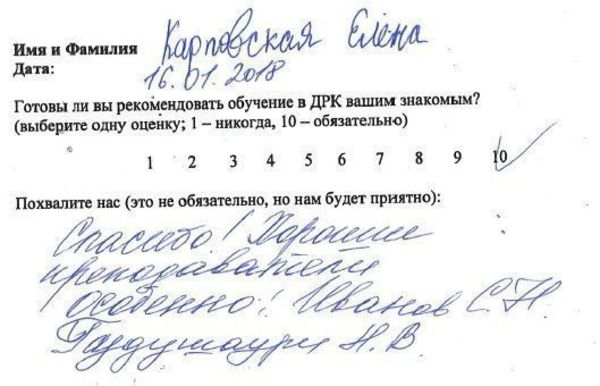 Имя и Фамилия Карповская Елена
Дата: 16.01.2018
Готовы ли вы рекомендовать обучение в ДРК вашим знакомым?
(выберите одну оценку; 1 – никогда, 10 – обязательно)
1 2 3 4 5 6 7 8 9 10
Похвалите нас (это не обязательно, но нам будет приятно):
Спасибо! Хорошие
преподаватели
особенно: Иванов С.Н.
Н.В